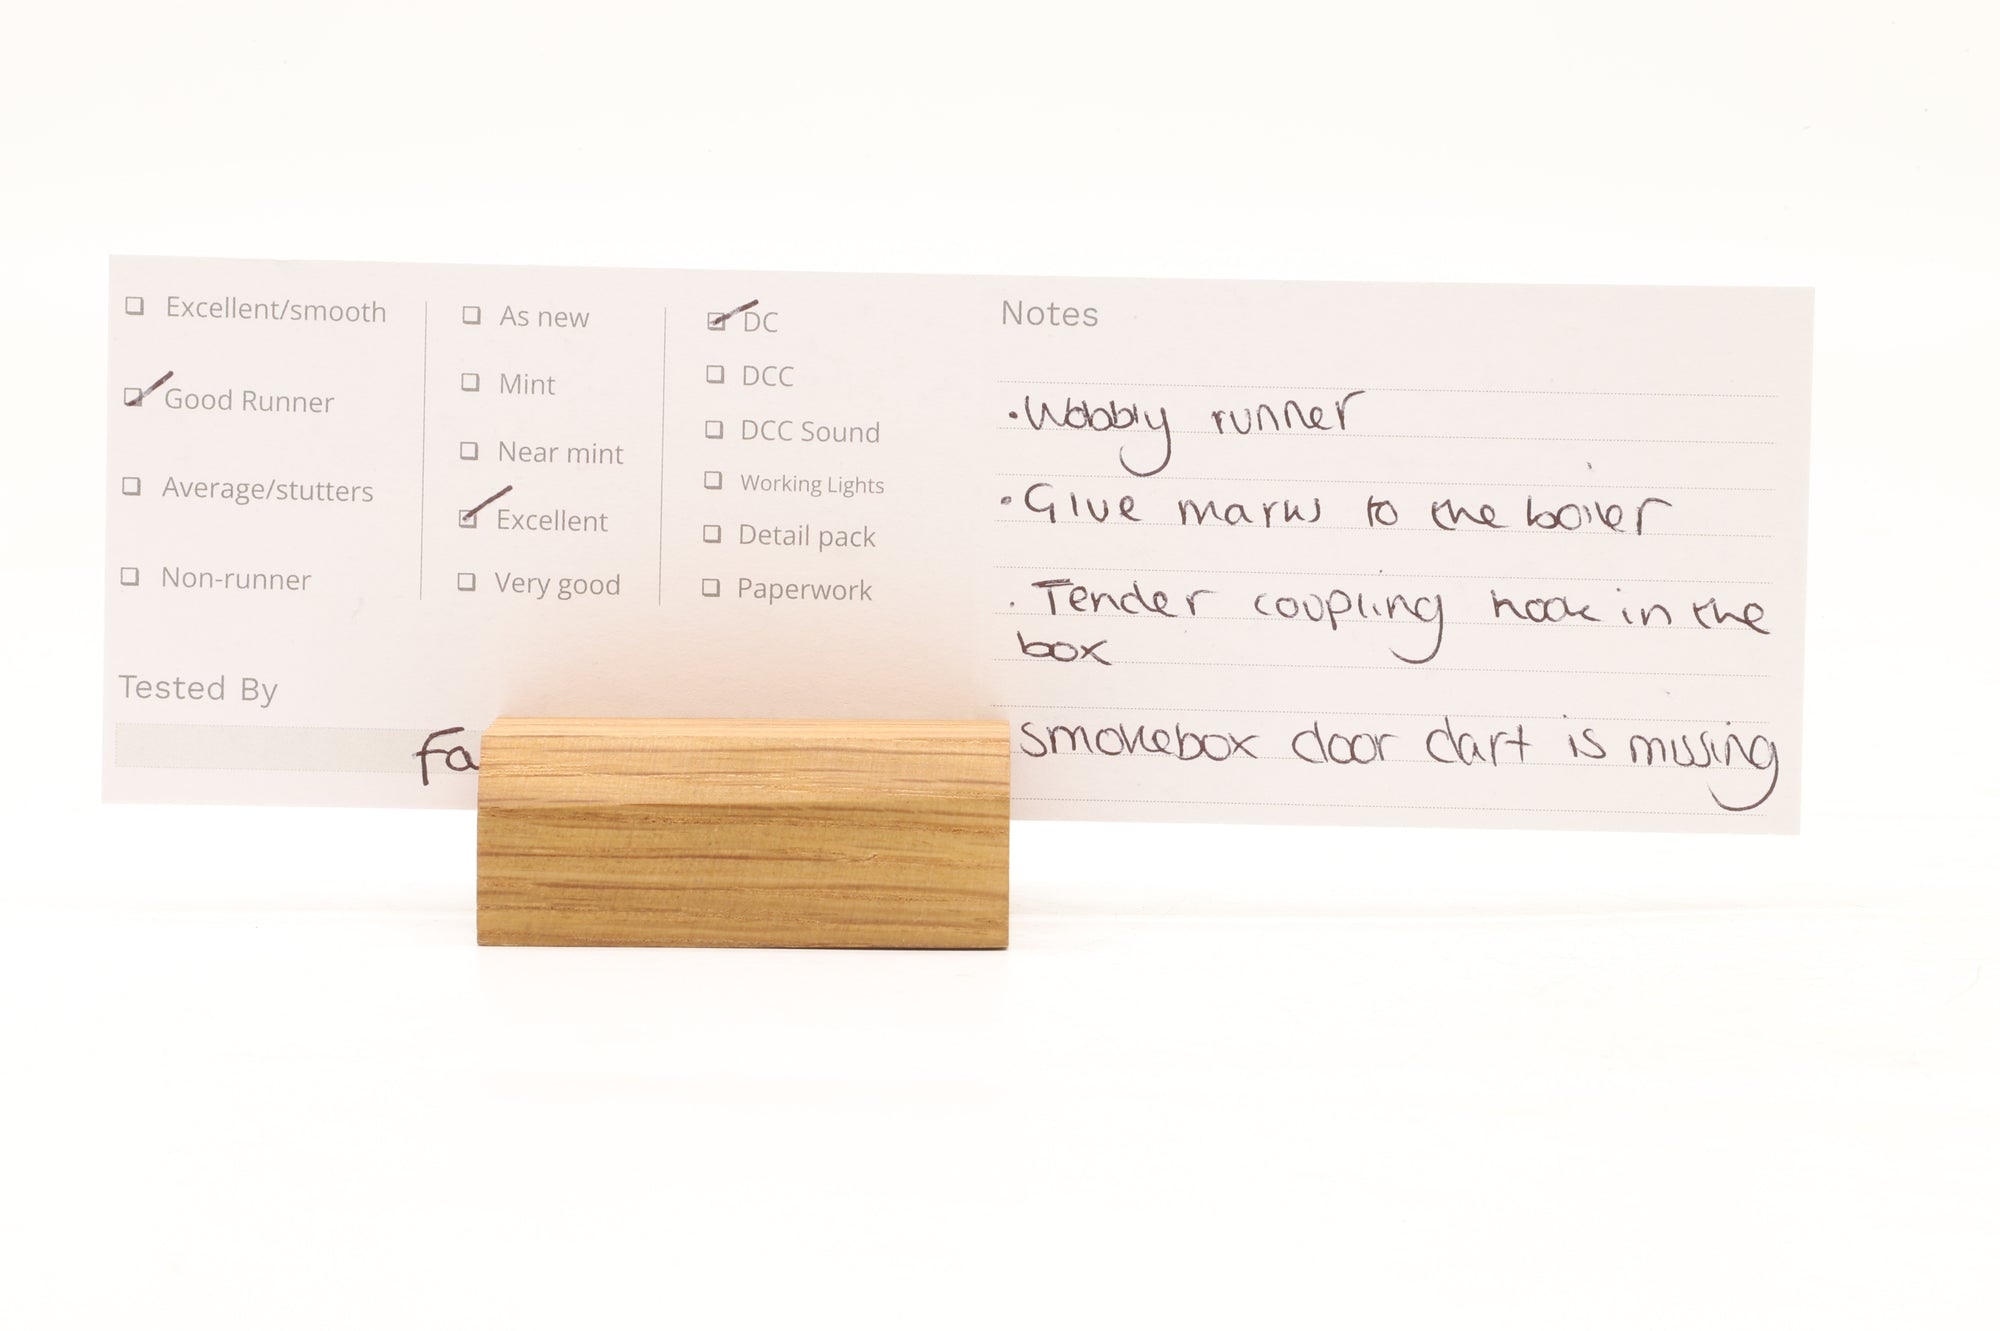 Excellent/smooth
Good Runner
Average/stutters
Non-runner
As new
Mint
Near mint
Excellent
Very good
DC
DCC
DCC Sound
Working Lights
Detail pack
Paperwork
Tested By
Fa
Notes
• Wobbly runner
• Glue marks to the boiler
• Tender coupling hook in the
box
smokebox door dart is missing